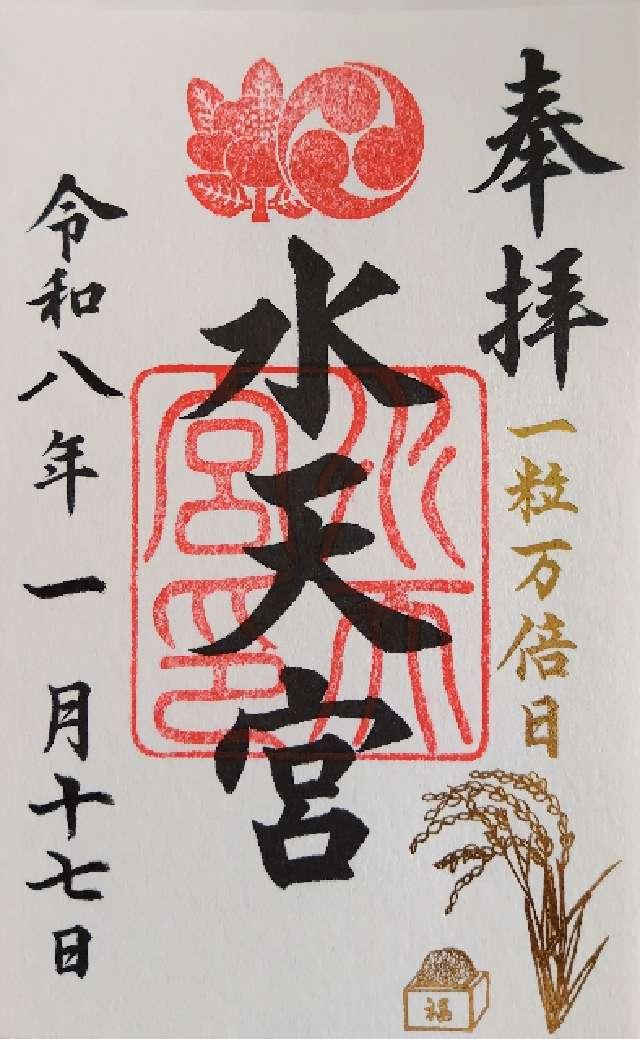 奉拝
一粒万倍日
福
水天宮
水天宮印
令和八年一月十七日